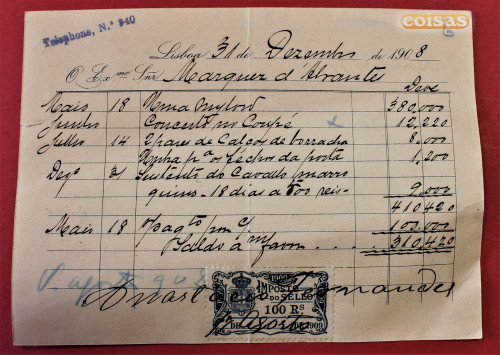 coisas
Telephone, N.º 940
Lisboa 31 de Dezembro de 1908
O Ex.mo Snr. Marquez d'Abrantes
Deve
Maio 18 Uma Mylord 380,000
Junho Concerto no Coupé x 12,220
Julho 14 2 pares de Calços de borracha 8,000
p.ª os fechos da porta 1,200
Dez.º 31 Sustento do Cavallo
18 dias a 500 reis 9,000
410420
Maio 18 pag.to por c/ 100,000
Saldo a m/ favor . . . . 310,420
agosto 909
1909
IMPOSTO DO SELLO
100 Rs
DE 1909
Fernandes
Agosto